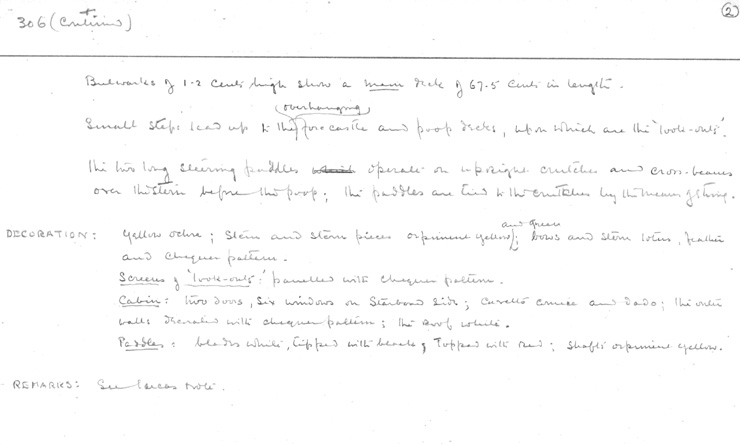 306 (Continued)
2
Bulwarks of 1-2 cents high show a main deck of 67.5 cents in length.
overhanging
Small steps lead up to the forecastle and poop decks, upon which are the 'look-outs'.
The two long steering paddles operate on upright crutches and cross-beams
over the stern before the poop; the paddles are tied to the crutches by the means of string.
and green
DECORATION: Yellow ochre; stem and stern pieces orpiment yellow; bows and stern lotus, feather
and chequer pattern.
Screens of 'look-outs': panelled with chequer pattern.
Cabin: two doors, six windows on Starboard side; cavetto cornice and dado; the outer
walls decorated with chequer pattern; the roof white.
Paddles: blades white, tipped with black, topped with red; shafts orpiment yellow.
REMARKS: See Lucas note.